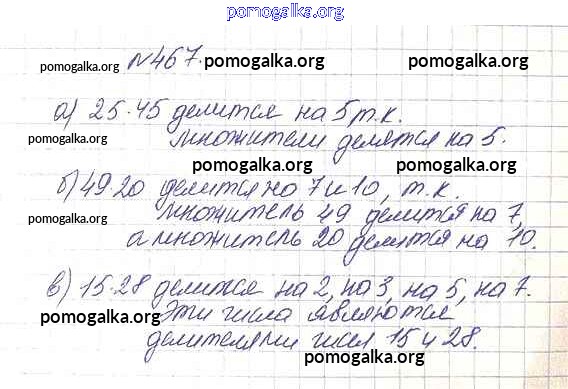 pomogalka.org
№467. pomogalka.org pomogalka.org
pomogalka.org
а) 25·45 делится на 5, т.к.
pomogalka.org множители делятся на 5.
pomogalka.org pomogalka.org
б) 49·20 делится на 7 и 10, т.к.
pomogalka.org множитель 49 делится на 7,
а множитель 20 делится на 10.
в) 15·28 делится на 2, на 3, на 5, на 7.
pomogalka.org Эти числа являются
делителями чисел 15 и 28.
pomogalka.org